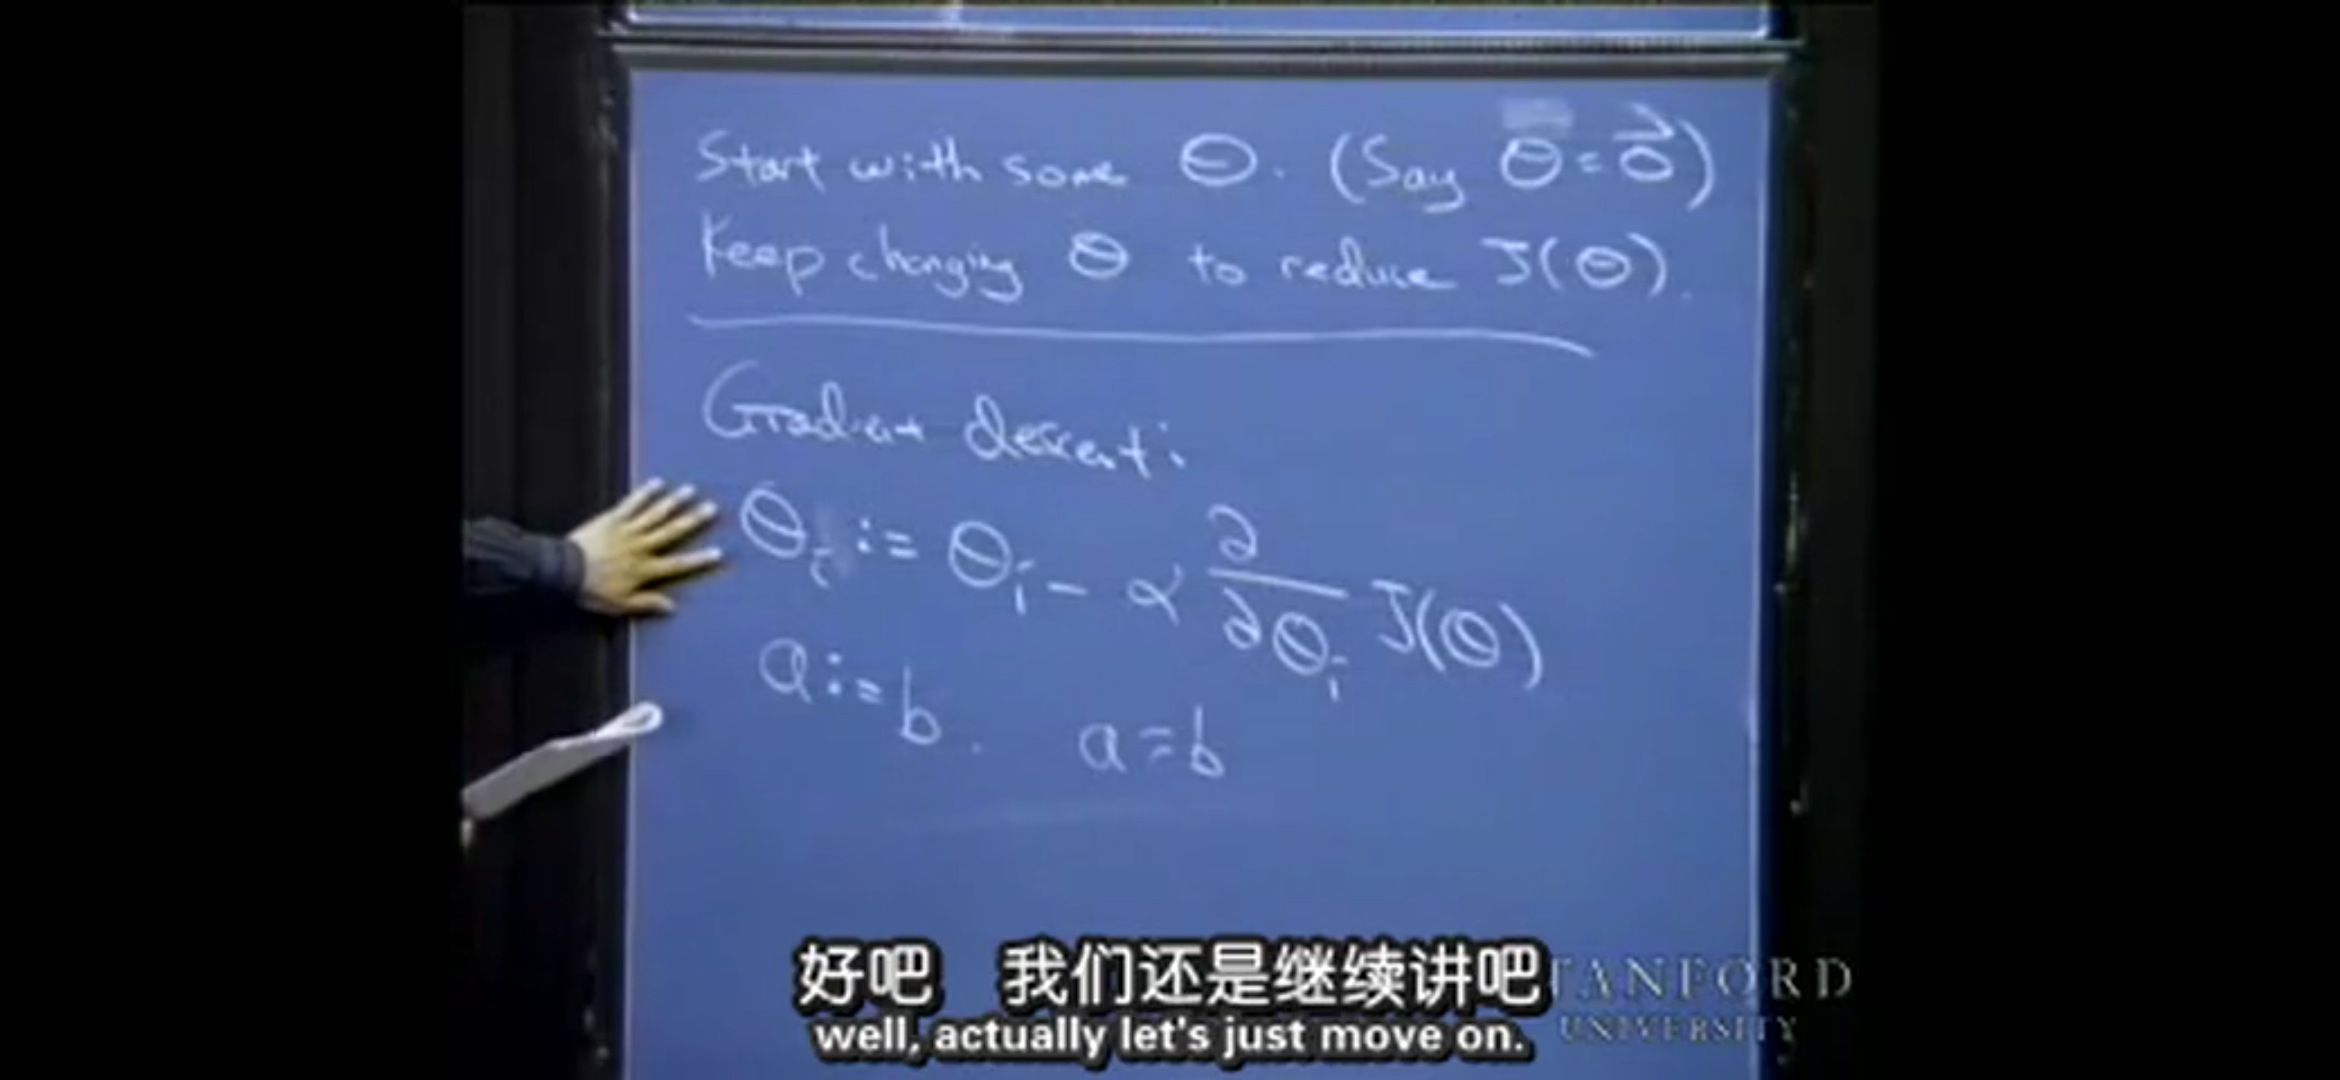 Start with some Θ. (Say Θ⃗ = 0⃗)
Keep changing Θ to reduce J(Θ).
Gradient descent:
Θᵢ := Θᵢ - α ∂/∂Θᵢ J(Θ)
a := b. a = b
好吧 我们还是继续讲吧
well, actually let's just move on.
STANFORD
UNIVERSITY